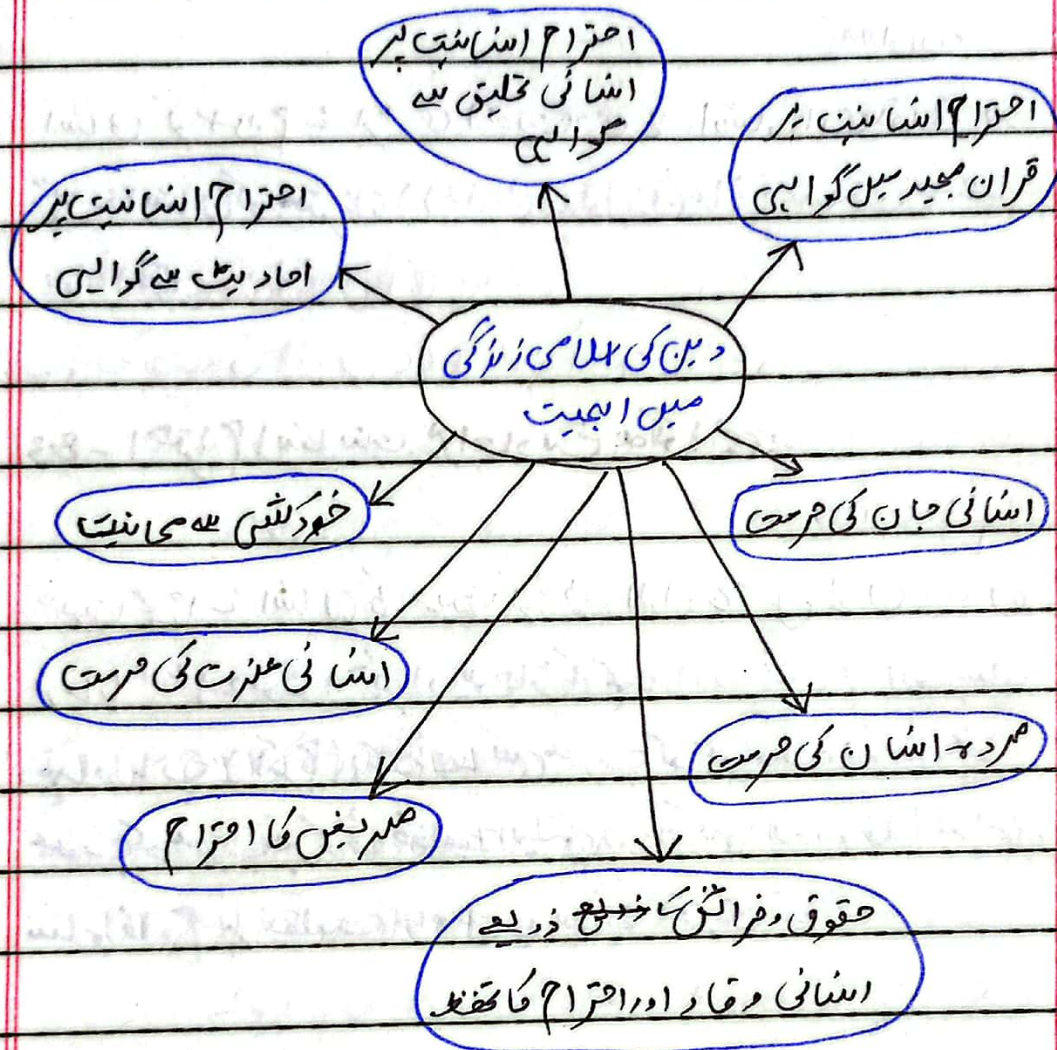 احترام انسانیت پر
انسانی تخلیق سے
گواہی
احترام انسانیت پر
قران مجید میں گواہی
احترام انسانیت پر
احادیث سے گواہی
دین کی اسلامی زندگی
میں اہمیت
خودکشی سے ممانیت
انسانی جان کی حرمت
انسانی عزت کی حرمت
مردہ انسان کی حرمت
مریض کا احترام
حقوق و فرائض کے ذریعے
انسانی وقار اور احترام کا تحفظ